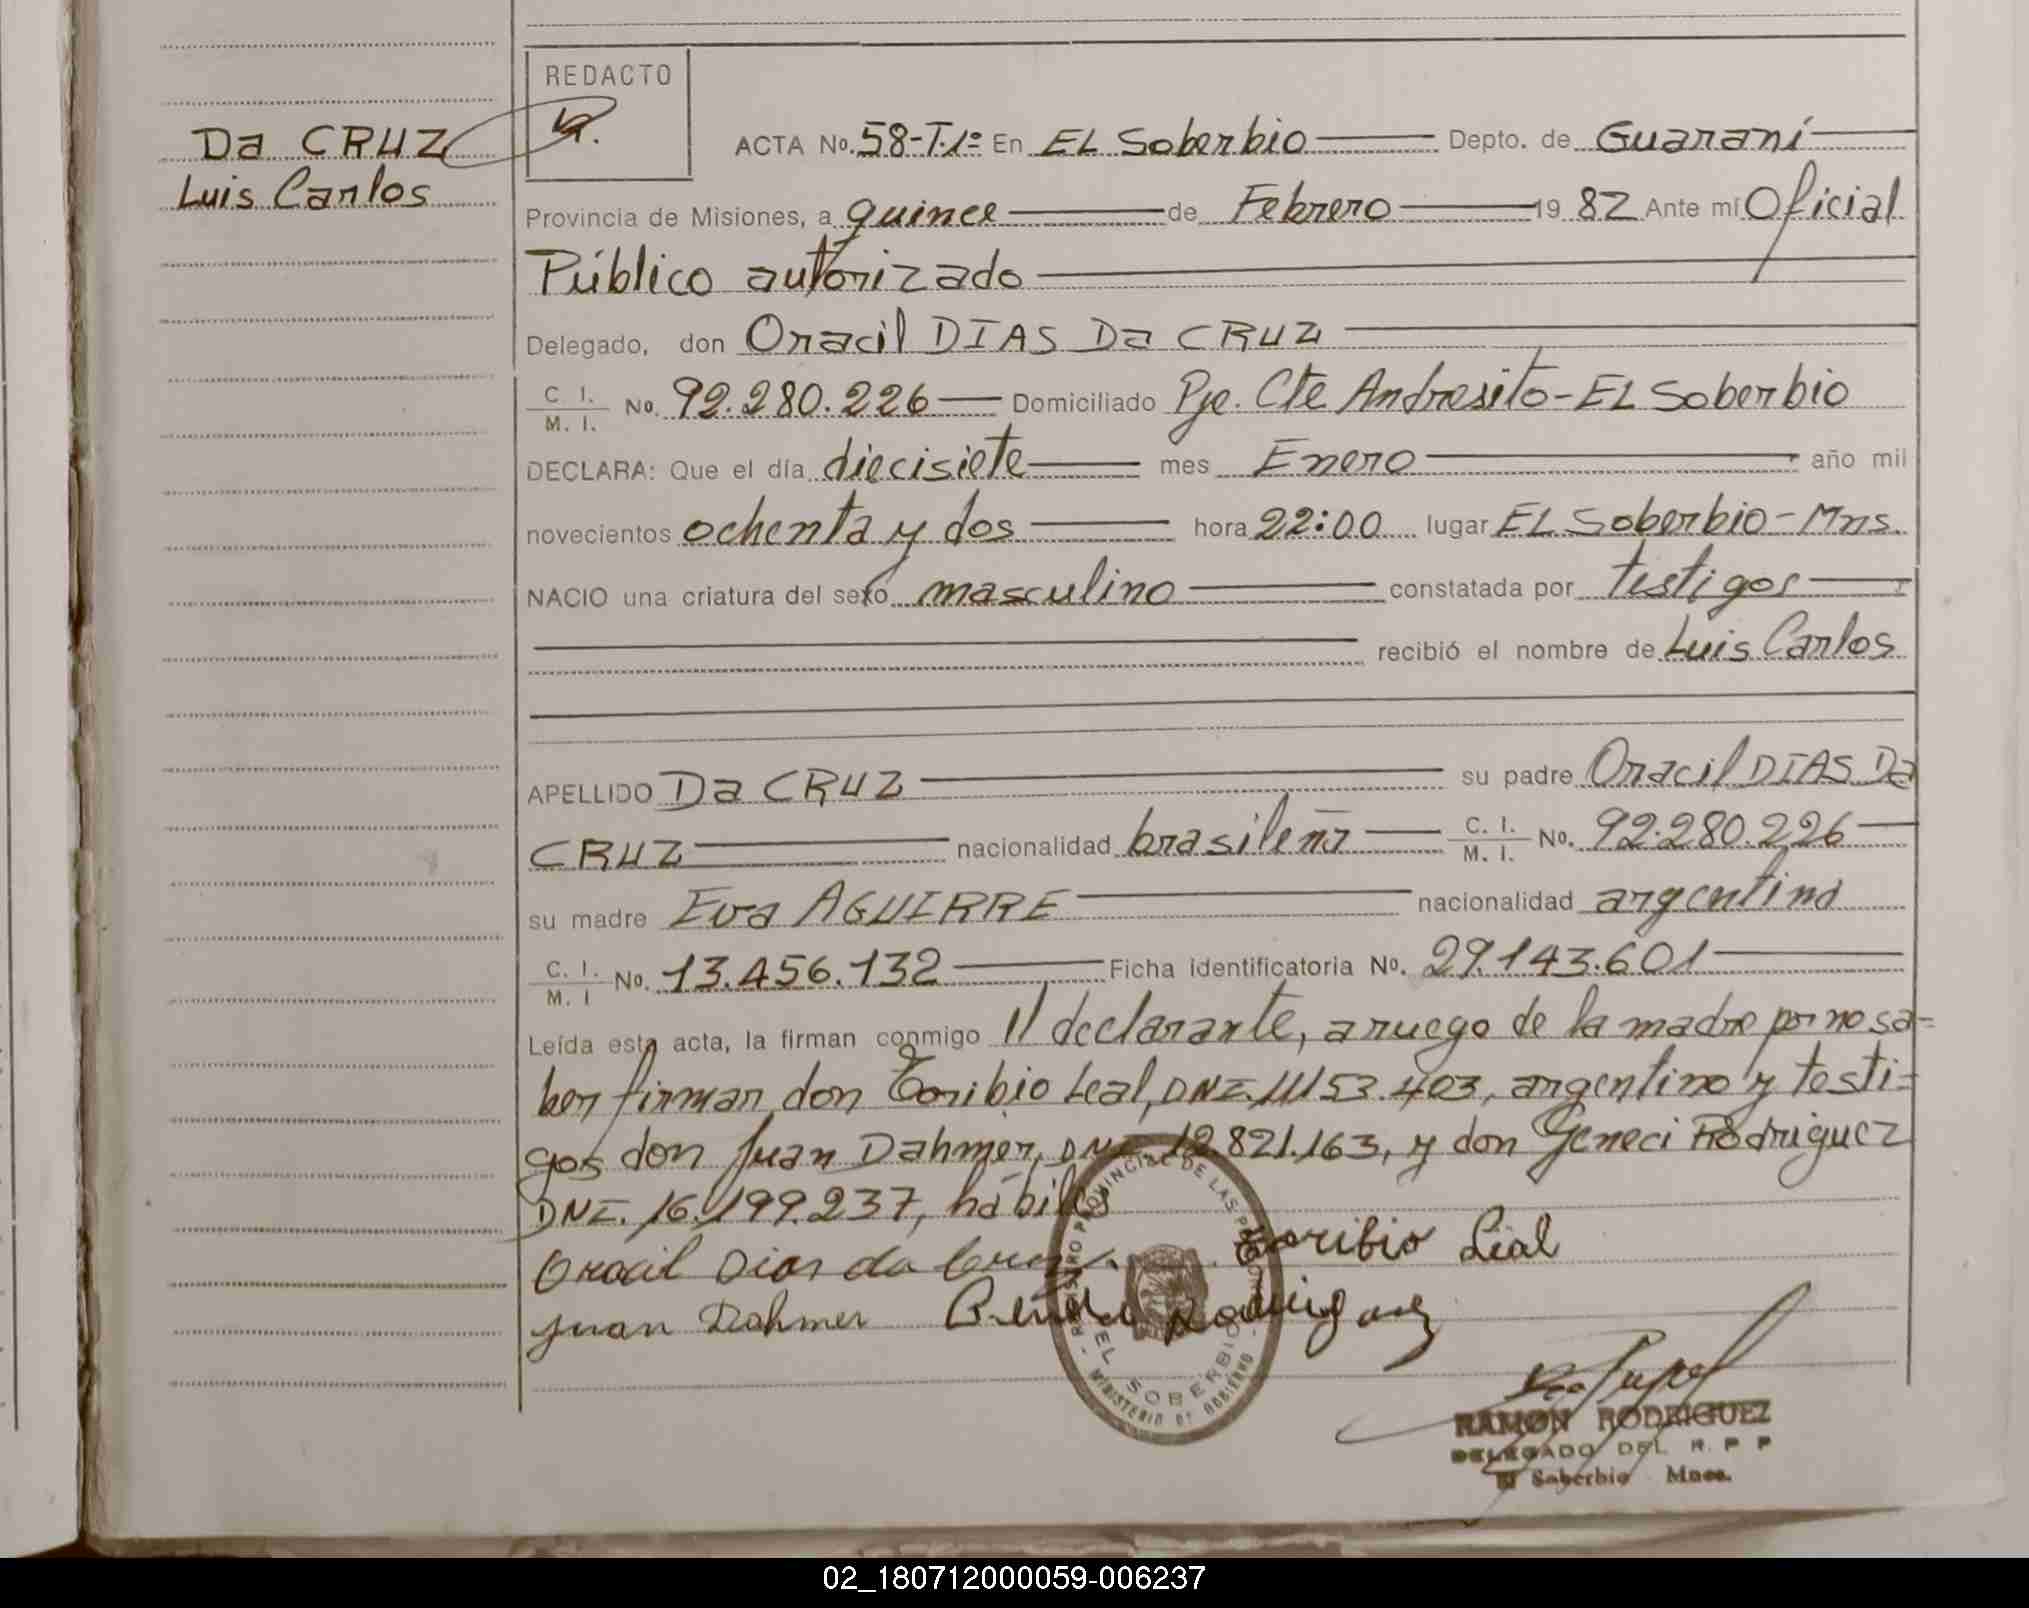 Da CRUZ
Luis Carlos
REDACTO
ACTA No. 58-T.1º En EL Soberbio Depto. de Guaraní
Provincia de Misiones, a quince de Febrero 19 82 Ante mí Oficial
Público autorizado
Delegado, don Oracil DIAS Da CRUZ
C. I. M. I. No. 92.280.226 Domiciliado Pje. Cte Andresito-EL Soberbio
DECLARA: Que el día diecisiete mes Enero año mil
novecientos ochenta y dos hora 22:00 lugar EL Soberbio-Mns.
NACIO una criatura del sexo masculino constatada por testigos
recibió el nombre de Luis Carlos
APELLIDO Da CRUZ su padre Oracil DIAS Da
CRUZ nacionalidad brasileña C. I. M. I. No. 92.280.226
su madre Eva AGUIRRE nacionalidad argentina
C. I. M. I No. 13.456.132 Ficha identificatoria No. 29.143.601
Leída esta acta, la firman conmigo El declarante, a ruego de la madre por no sa-
ber firmar, don Toribio Leal, DNI. 11153.403, argentino y testi-
gos don Juan Dahmer, DNI. 12.821.163, y don Geneci Rodriguez
DNI. 16.199.237, hábiles
Oracil Dias da Cruz. Toribio Leal
Juan Dahmer Rodriguez
REGISTRO PROVINCIAL DE LAS
EL SOBERBIO
MINISTERIO DE GOBIERNO
RAMON RODRIGUEZ
DELEGADO DEL R. P P
El Soberbio Mnes.
02_180712000059-006237